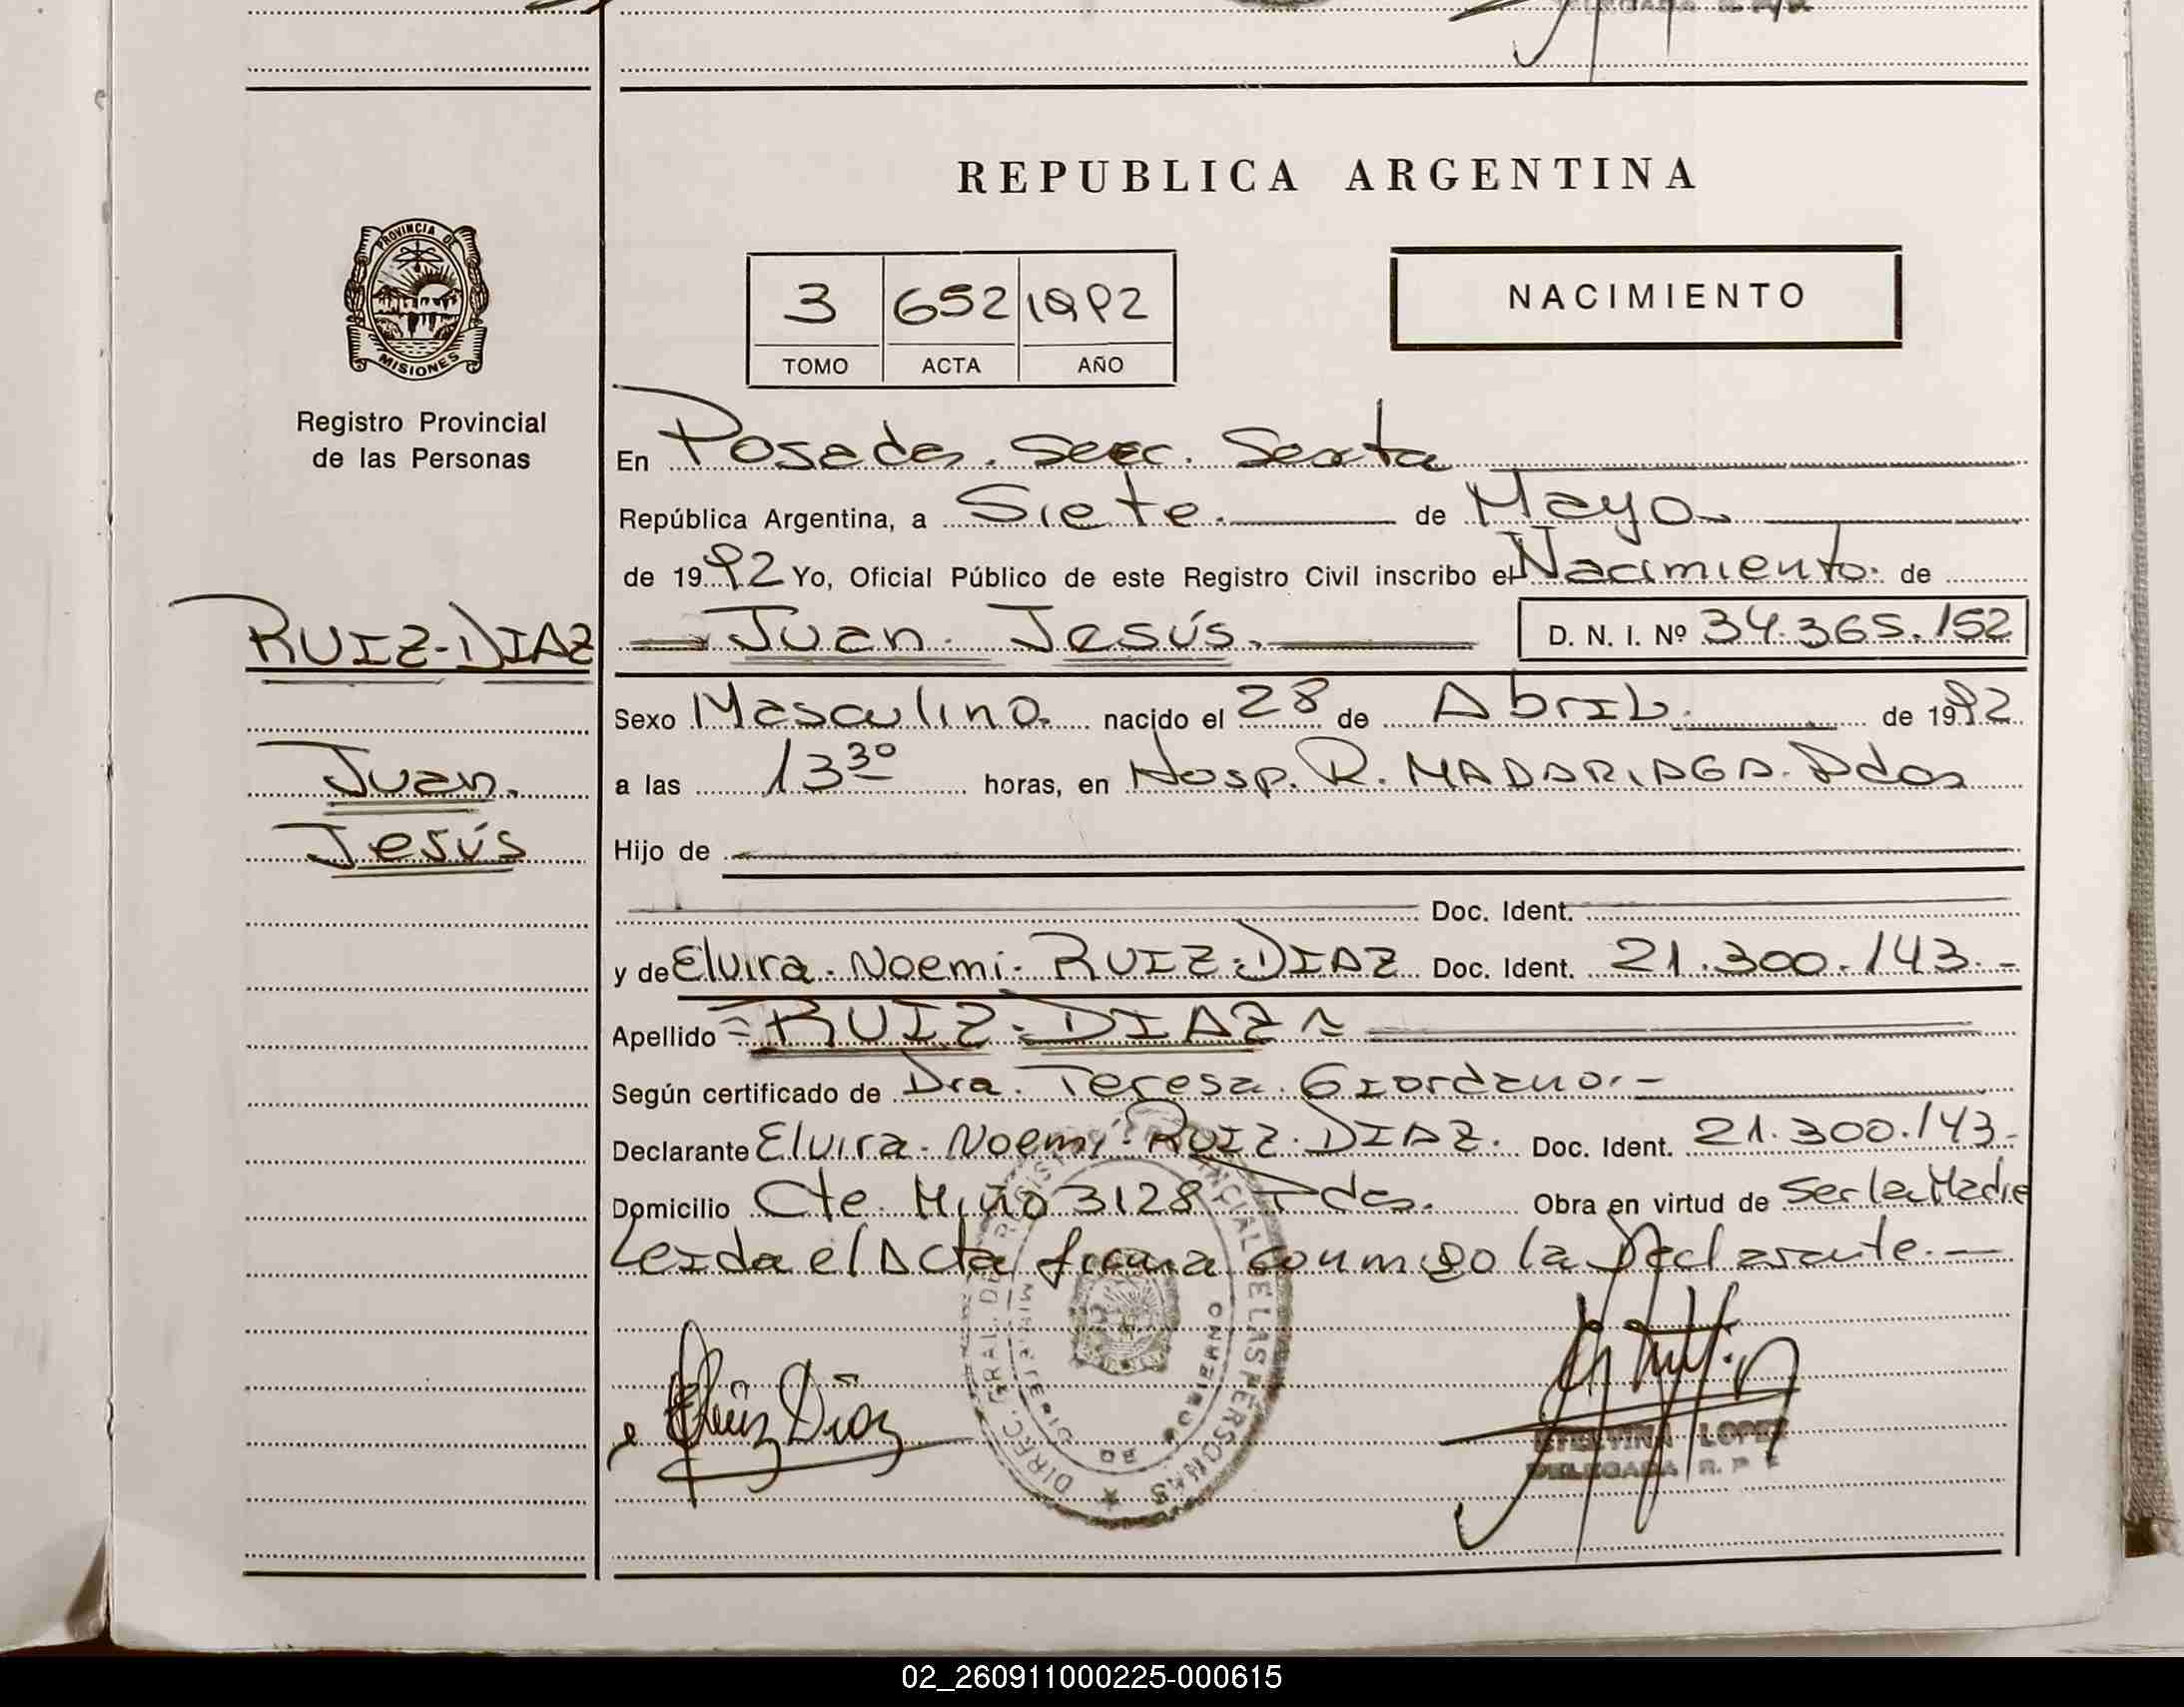 REPUBLICA ARGENTINA
PROVINCIA DE
MISIONES
3 652 1992
TOMO ACTA AÑO
NACIMIENTO
Registro Provincial
de las Personas
En Posadas. Secc. Sexta
República Argentina, a Siete. de Mayo
de 1992 Yo, Oficial Público de este Registro Civil inscribo el Nacimiento de
RUIZ-DIAZ
Juan Jesús. D. N. I. Nº 34.365.152
Sexo Masculino. nacido el 28 de Abril. de 1992
Juan.
a las 13 30 horas, en Hosp. R. MADARIAGA. Pdas
Jesús
Hijo de
Doc. Ident.
y de Elvira. Noemi. RUIZ-DIAZ Doc. Ident. 21.300.143.-
Apellido = RUIZ-DIAZ
Según certificado de Dra. Teresa. Giordano.-
Declarante Elvira. Noemi. RUIZ. DIAZ. Doc. Ident. 21.300.143-
Domicilio Cte. Miño 3128 Pdas. Obra en virtud de Ser la Madre
Leida el Acta firma conmigo la Declarante.—
DIREC. GRAL. DE REGISTRO PROVINCIAL DE LAS PERSONAS
MINISTERIO DE GOBIERNO
Ruiz Diaz
LOPEZ
DELEGADA R. P. P.
02_260911000225-000615